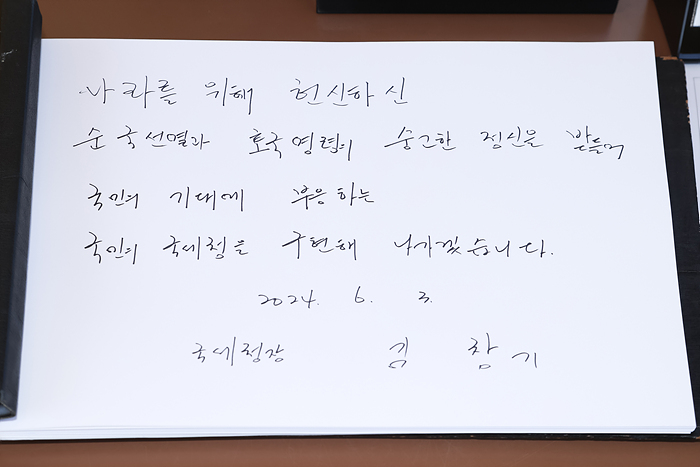 나라를 위해 헌신하신
순국선열과 호국영령의 숭고한 정신을 받들어
국민의 기대에 부응하는
국민의 국세청을 구현해 나가겠습니다.
2024. 6. 3.
국세청장 김 창 기